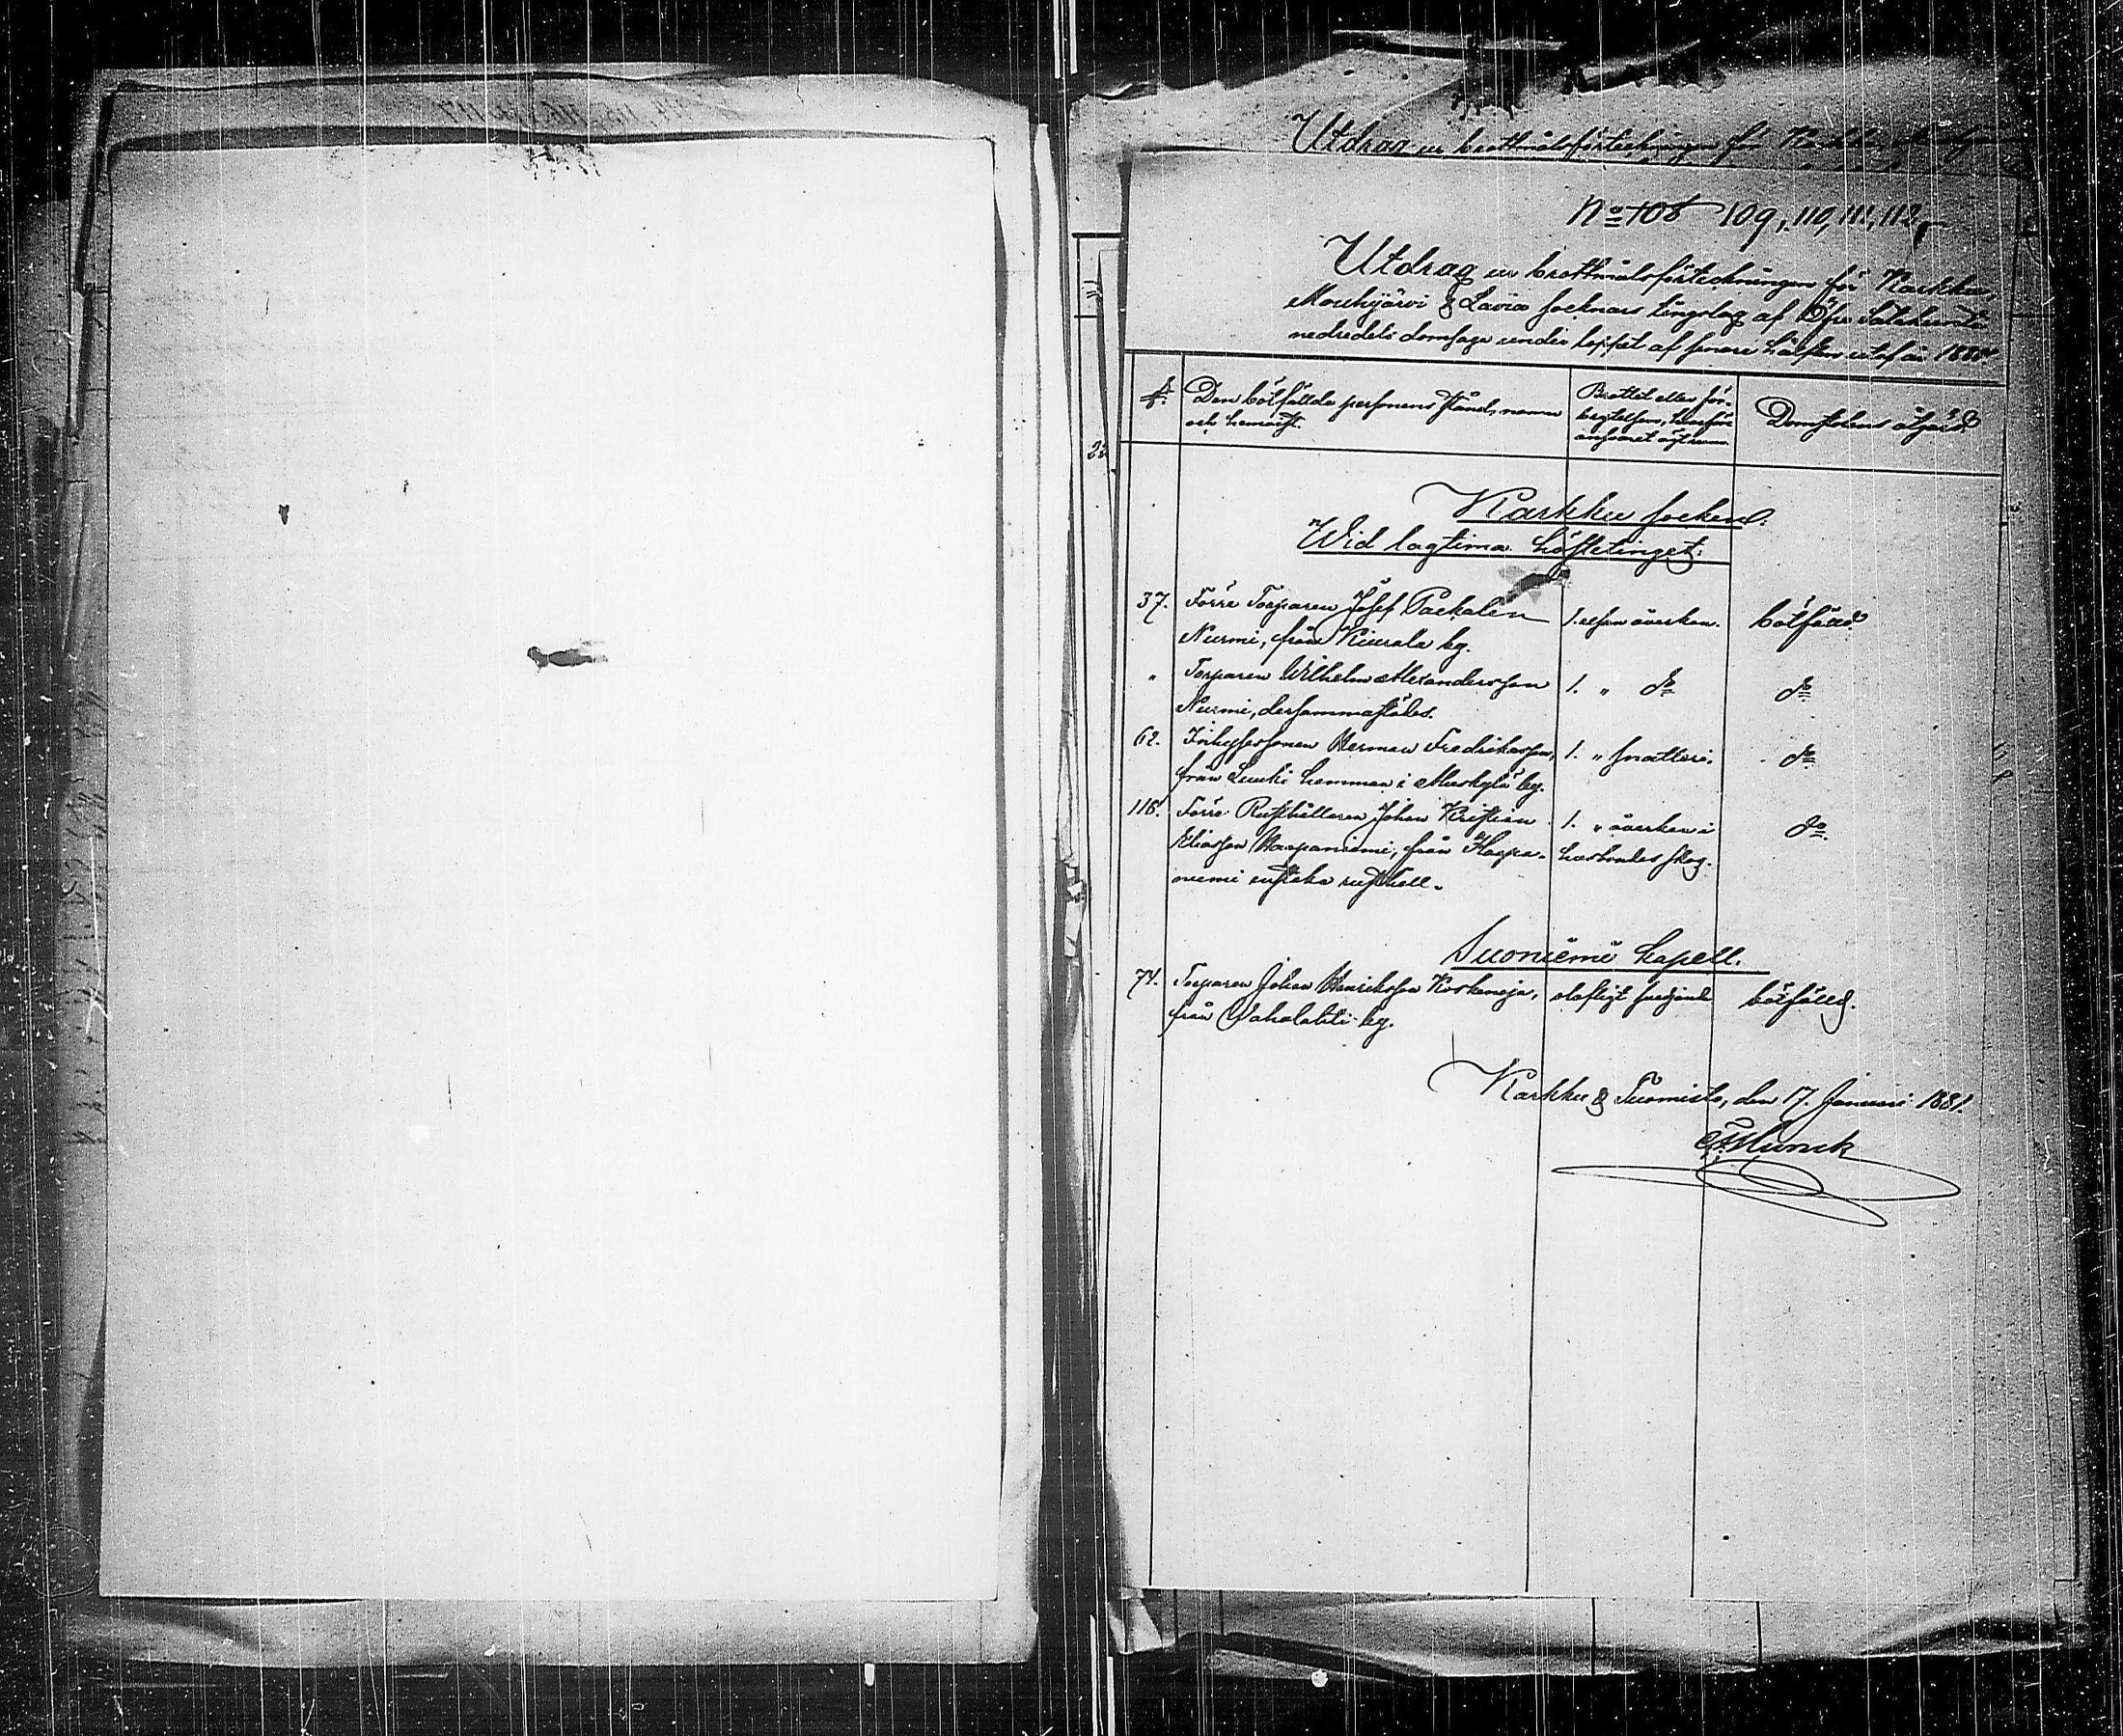 Utdrag ur brottmålsförteckningen för Karkku
No 108 109, 110, 111, 112,
Utdrag ur brottmålsförteckningen för Karkku,
Mouhijärvi & Lavia socknars tingslag af Öfre Satakunda
nedredels domsaga under loppet af senare hälften utaf år 1880
§. Den bötfällda personens stånd, namn
och hemvist.
Brottet eller för-
brytelsen, hvarföre
ansvaret ägt rum.
Domstolens åtgärd.
Karkku socken.
Wid lagtima höstetinget:
37. Förre Torparen Josef
Nurmi, från Kiurala by.
1. resan åverkan. bötfälld.
" Torparen Wilhelm Alexandersson
Nurmi, dersammastädes.
1. " do do
62. Inhysespersonen Herman Fredriksson,
från hemman i by.
1. " snatteri. do
118. Förre Rusthållaren Johan Kristian
Eliasson Haapaniemi, från Haapa-
niemi rusthåll.
1. " åverkan i
härbrändes skog.
do.
Suoniemi kapell.
74. Torparen Johan Henriksson Koskenoja,
från Wahalahti by.
olofligt svedjande bötfälld.
Karkku & Tuomisto, den 17. Januari 1881.